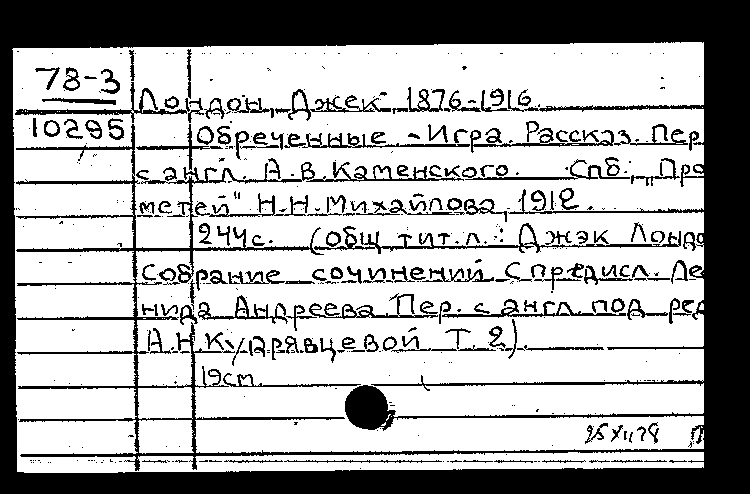 78-3
Лондон, Джек, 1876-1916.
10295
Обреченные - Игра. Рассказ. Пер
с англ. А.В.Каменского. Спб., „Про
метей" Н.Н.Михайлова, 1912.
244с. (общ. тит.л.: Джэк Лондо
Собрание сочинений. С предисл. Ле
нида Андреева. Пер. с англ. под ред
А.Н.Кудрявцевой Т. 2).
19см.
25 XII 78 П